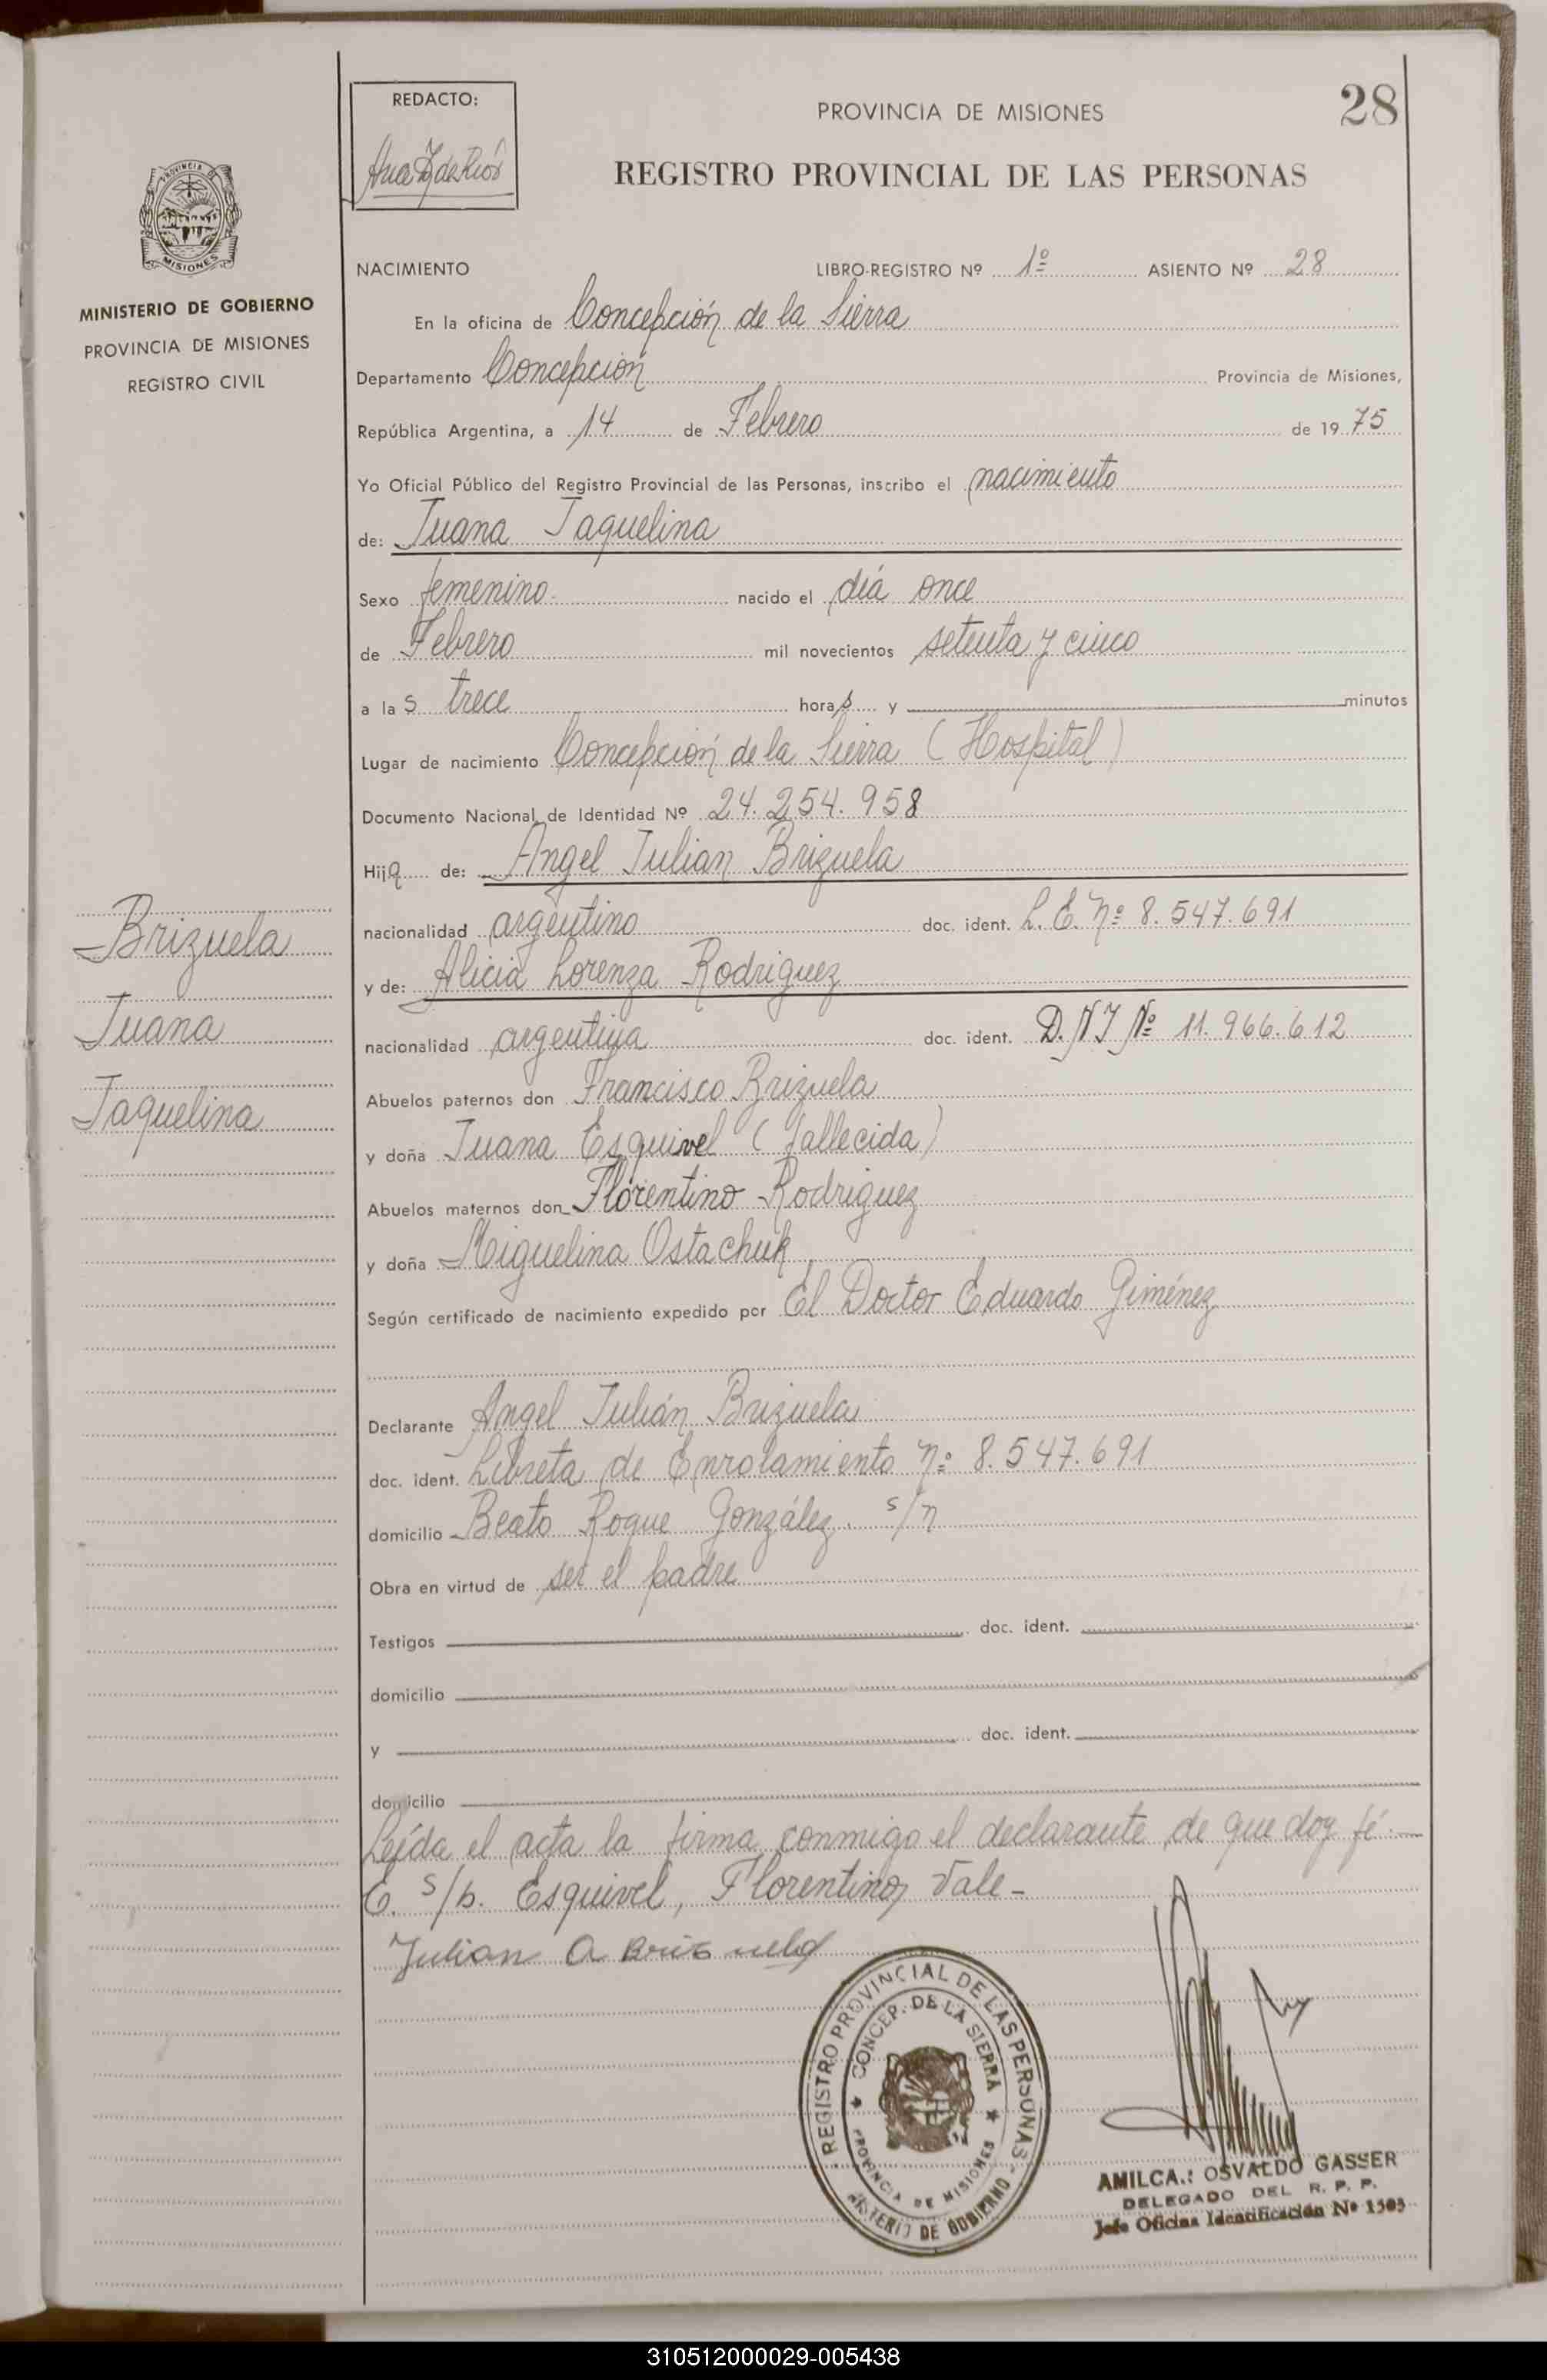 REDACTO:
PROVINCIA DE MISIONES
28
REGISTRO PROVINCIAL DE LAS PERSONAS
MISIONES
MINISTERIO DE GOBIERNO
PROVINCIA DE MISIONES
REGISTRO CIVIL
NACIMIENTO LIBRO-REGISTRO Nº 1º ASIENTO Nº 28
En la oficina de Concepción de la Sierra
Departamento Concepción Provincia de Misiones,
República Argentina, a 14 de Febrero de 19 75
Yo Oficial Público del Registro Provincial de las Personas, inscribo el nacimiento
de: Juana Jaquelina
Sexo femenino. nacido el día once
de Febrero mil novecientos setenta y cinco
a las trece horas y minutos
Lugar de nacimiento Concepción de la Sierra (Hospital)
Documento Nacional de Identidad Nº 24.254.958
Hija de: Angel Julian Brizuela
nacionalidad argentino doc. ident. L.E. Nº 8.547.691
y de: Alicia Lorenza Rodriguez
nacionalidad argentina doc. ident. D.N.I Nº 11.966.612
Abuelos paternos don Francisco Brizuela
y doña Juana Esquivel (fallecida)
Abuelos maternos don Florentino Rodriguez
y doña Miguelina Ostachuk
Según certificado de nacimiento expedido por El Doctor Eduardo Giménez
Declarante Angel Julián Brizuela
doc. ident. Libreta de Enrolamiento Nº 8.547.691
domicilio Beato Roque González s/n
Obra en virtud de ser el padre
Testigos doc. ident.
domicilio
y doc. ident.
domicilio
Leída el acta la firma conmigo el declarante de que doy fé.
E. s/b. Esquivel, Florentino, Vale-
Julian A Brisuela
Brizuela
Juana
Jaquelina
REGISTRO PROVINCIAL DE LAS PERSONAS
CONCEP. DE LA SIERRA
PROVINCIA DE MISIONES
DE GOBIERNO
OSVALDO GASSER
DELEGADO DEL R. P. P.
Jefe Oficina Identificación Nº 1505
310512000029-005438